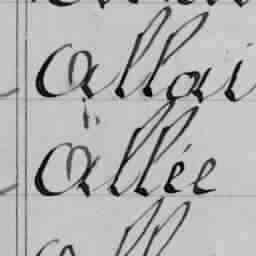 Allai
Allée